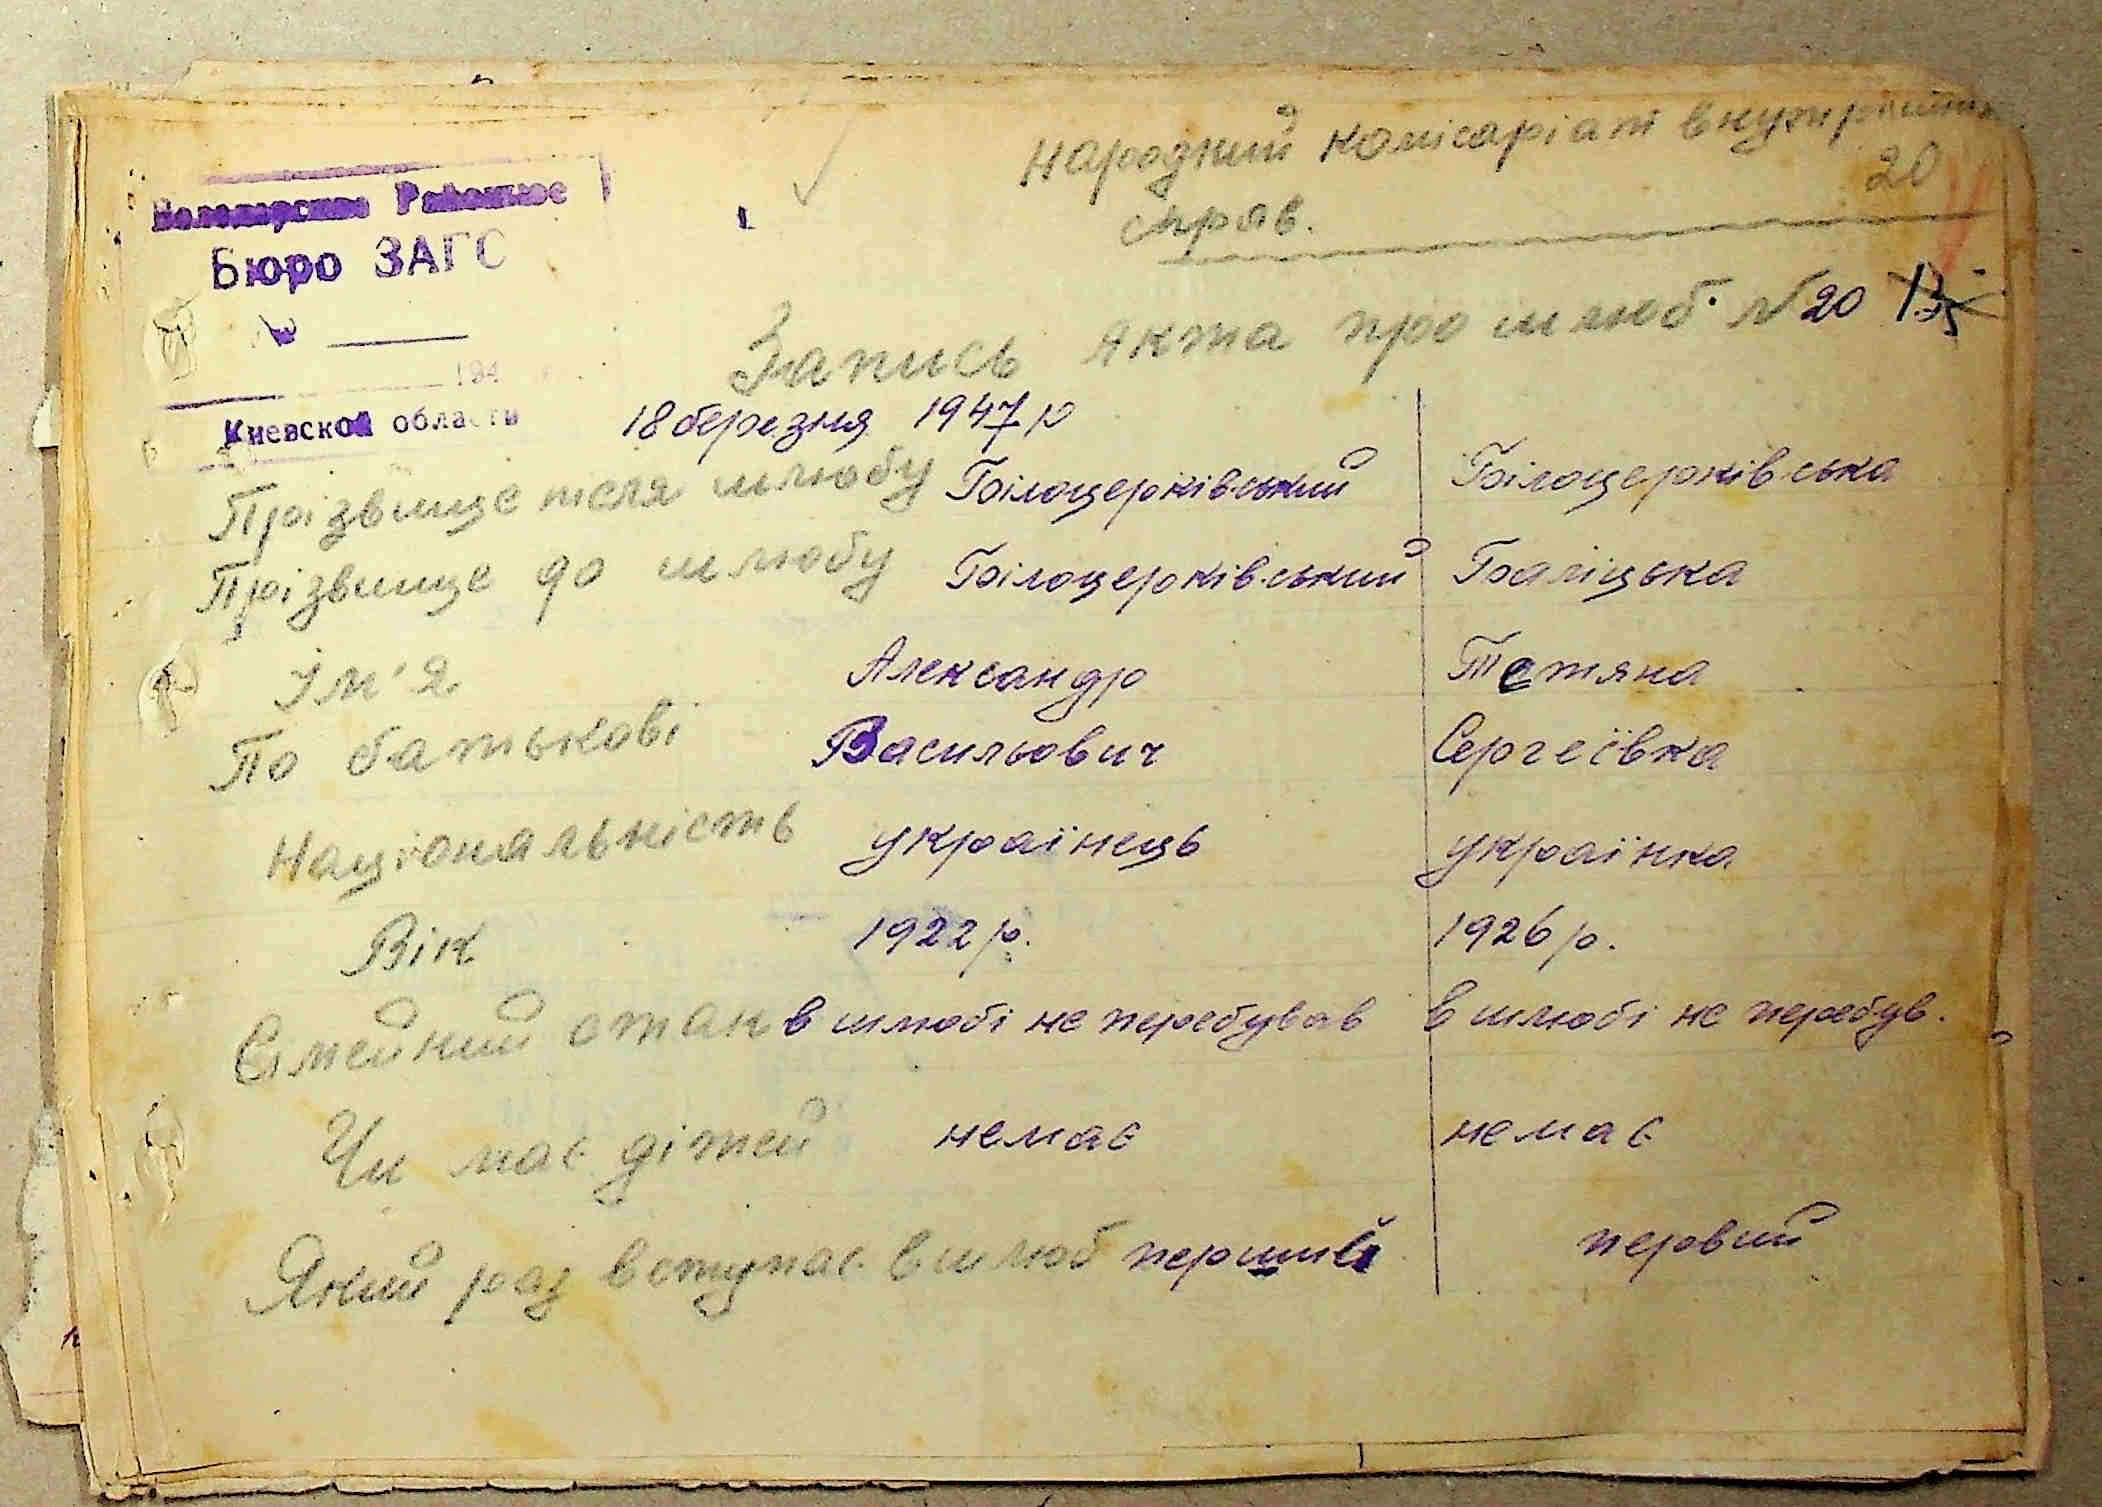 Народний комісаріат внутрішніх
20
справ.
Володарское Районное
Бюро ЗАГС
№
194
Киевской области
Запись якта про шлюб. N 20 135
18 березня 1947 р
Прізвище після шлюбу Білоцерківський Білоцерківська
Прізвище до шлюбу Білоцерківський Баліцька
Ім'я Александр Тетяна
По батькові Васильович Сергеївка
Національність українець українка
Вік 1922 р. 1926 р.
Сімейний стан в шлюбі не перебував в шлюбі не перебув.
Чи має дітей немає немає
Який раз вступає в шлюб перший первий